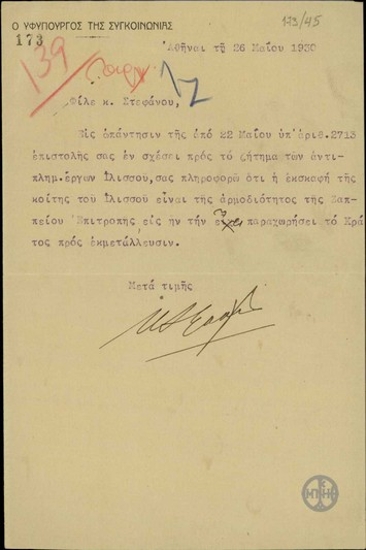 Ο ΥΦΥΠΟΥΡΓΟΣ ΤΗΣ ΣΥΓΚΟΙΝΩΝΙΑΣ
173/45
173
Ἀθῆναι τῇ 26 Μαΐου 1930
139
17
Φίλε κ. Στεφάνου,
Εἰς ἀπάντησιν τῆς ὑπό 22 Μαΐου ὑπ'ἀριθ.2713
ἐπιστολῆς σας ἐν σχέσει πρός τό ζήτημα τῶν ἀντι-
πλημ.ἔργων Ἰλισσοῦ,σας πληροφορῶ ὅτι ἡ ἐκσκαφή τῆς
κοίτης τοῦ Ἰλισσοῦ εἶναι τῆς ἁρμοδιότητος τῆς Ζαπ-
πείου Ἐπιτροπῆς εἰς ἥν τήν ἔχει παραχωρήσει τό Κρά
τος πρός ἐκμετάλλευσιν.
Μετά τιμῆς